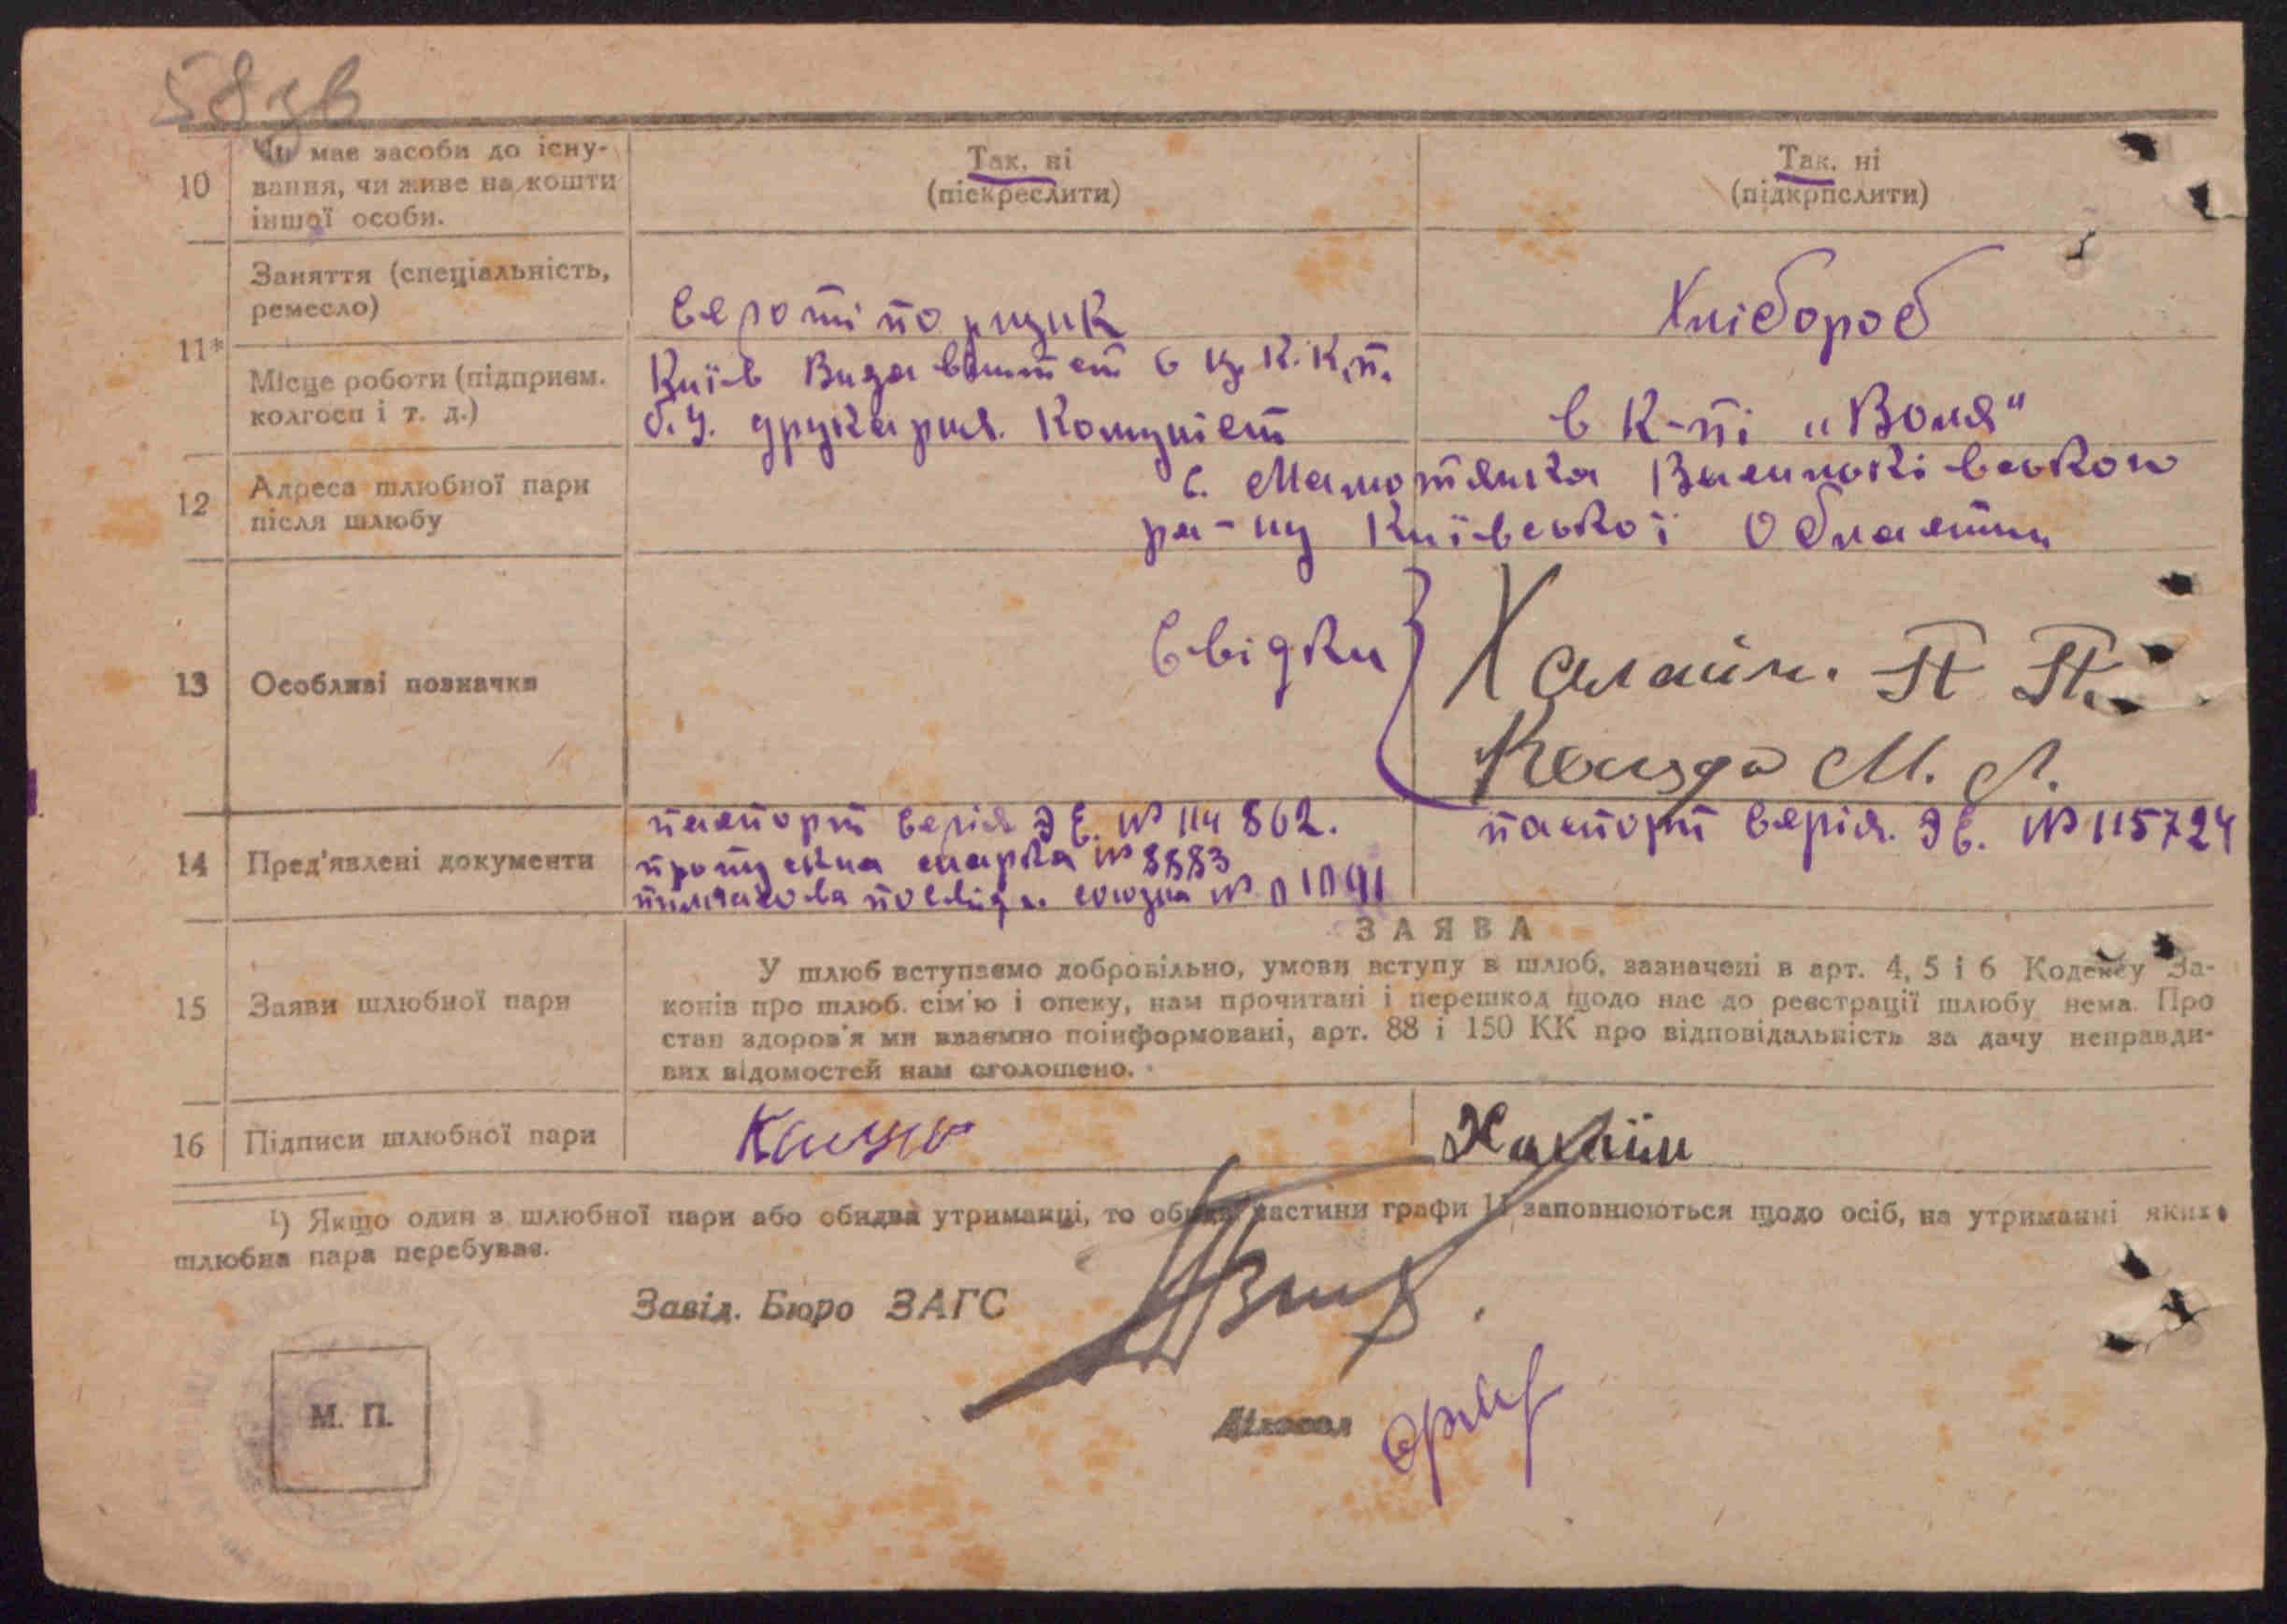 58 зв
10
Чи має засоби до існу-
вання, чи живе на кошти
іншої особи.
Так, ні
(піскреслити)
Так, ні
(підкрпслити)
11*
Заняття (спеціальність,
ремесло)
Хлібороб
Місце роботи (підприєм.
колгосп і т. д.)
Київ Видавництво Ц.К.К.П.
б.У. друкарня. Комуніст
в к-пі „Воля"
12
Адреса шлюбної пари
після шлюбу
с. Мамотянка
ра-ну Київської Области
13
Особливі позначки
Свідки
Халаїм. П П.
М. Л.
14
Пред'явлені документи
паспорт серія ЭЕ. № 114 862.
пропускна марка № 8883
союзна №
паспорт серія. ЭЕ. № 115724
ЗАЯВА
15
Заяви шлюбної пари
У шлюб вступаємо добровільно, умови вступу в шлюб, зазначені в арт. 4, 5 і 6 Кодексу За-
конів про шлюб. сім'ю і опеку, нам прочитані і перешкод щодо нас до реєстрації шлюбу нема. Про
стан здоров'я ми взаємно поінформовані, арт. 88 і 150 КК про відповідальність за дачу неправди-
вих відомостей нам оголошено.
16
Підписи шлюбної пари
Халаїм
¹) Якщо один з шлюбної пари або обидва утриманці, то обидві частини графи 11 заповнюються щодо осіб, на утриманні яких
шлюбна пара перебуває.
Завід. Бюро ЗАГС
Діловод
М. П.